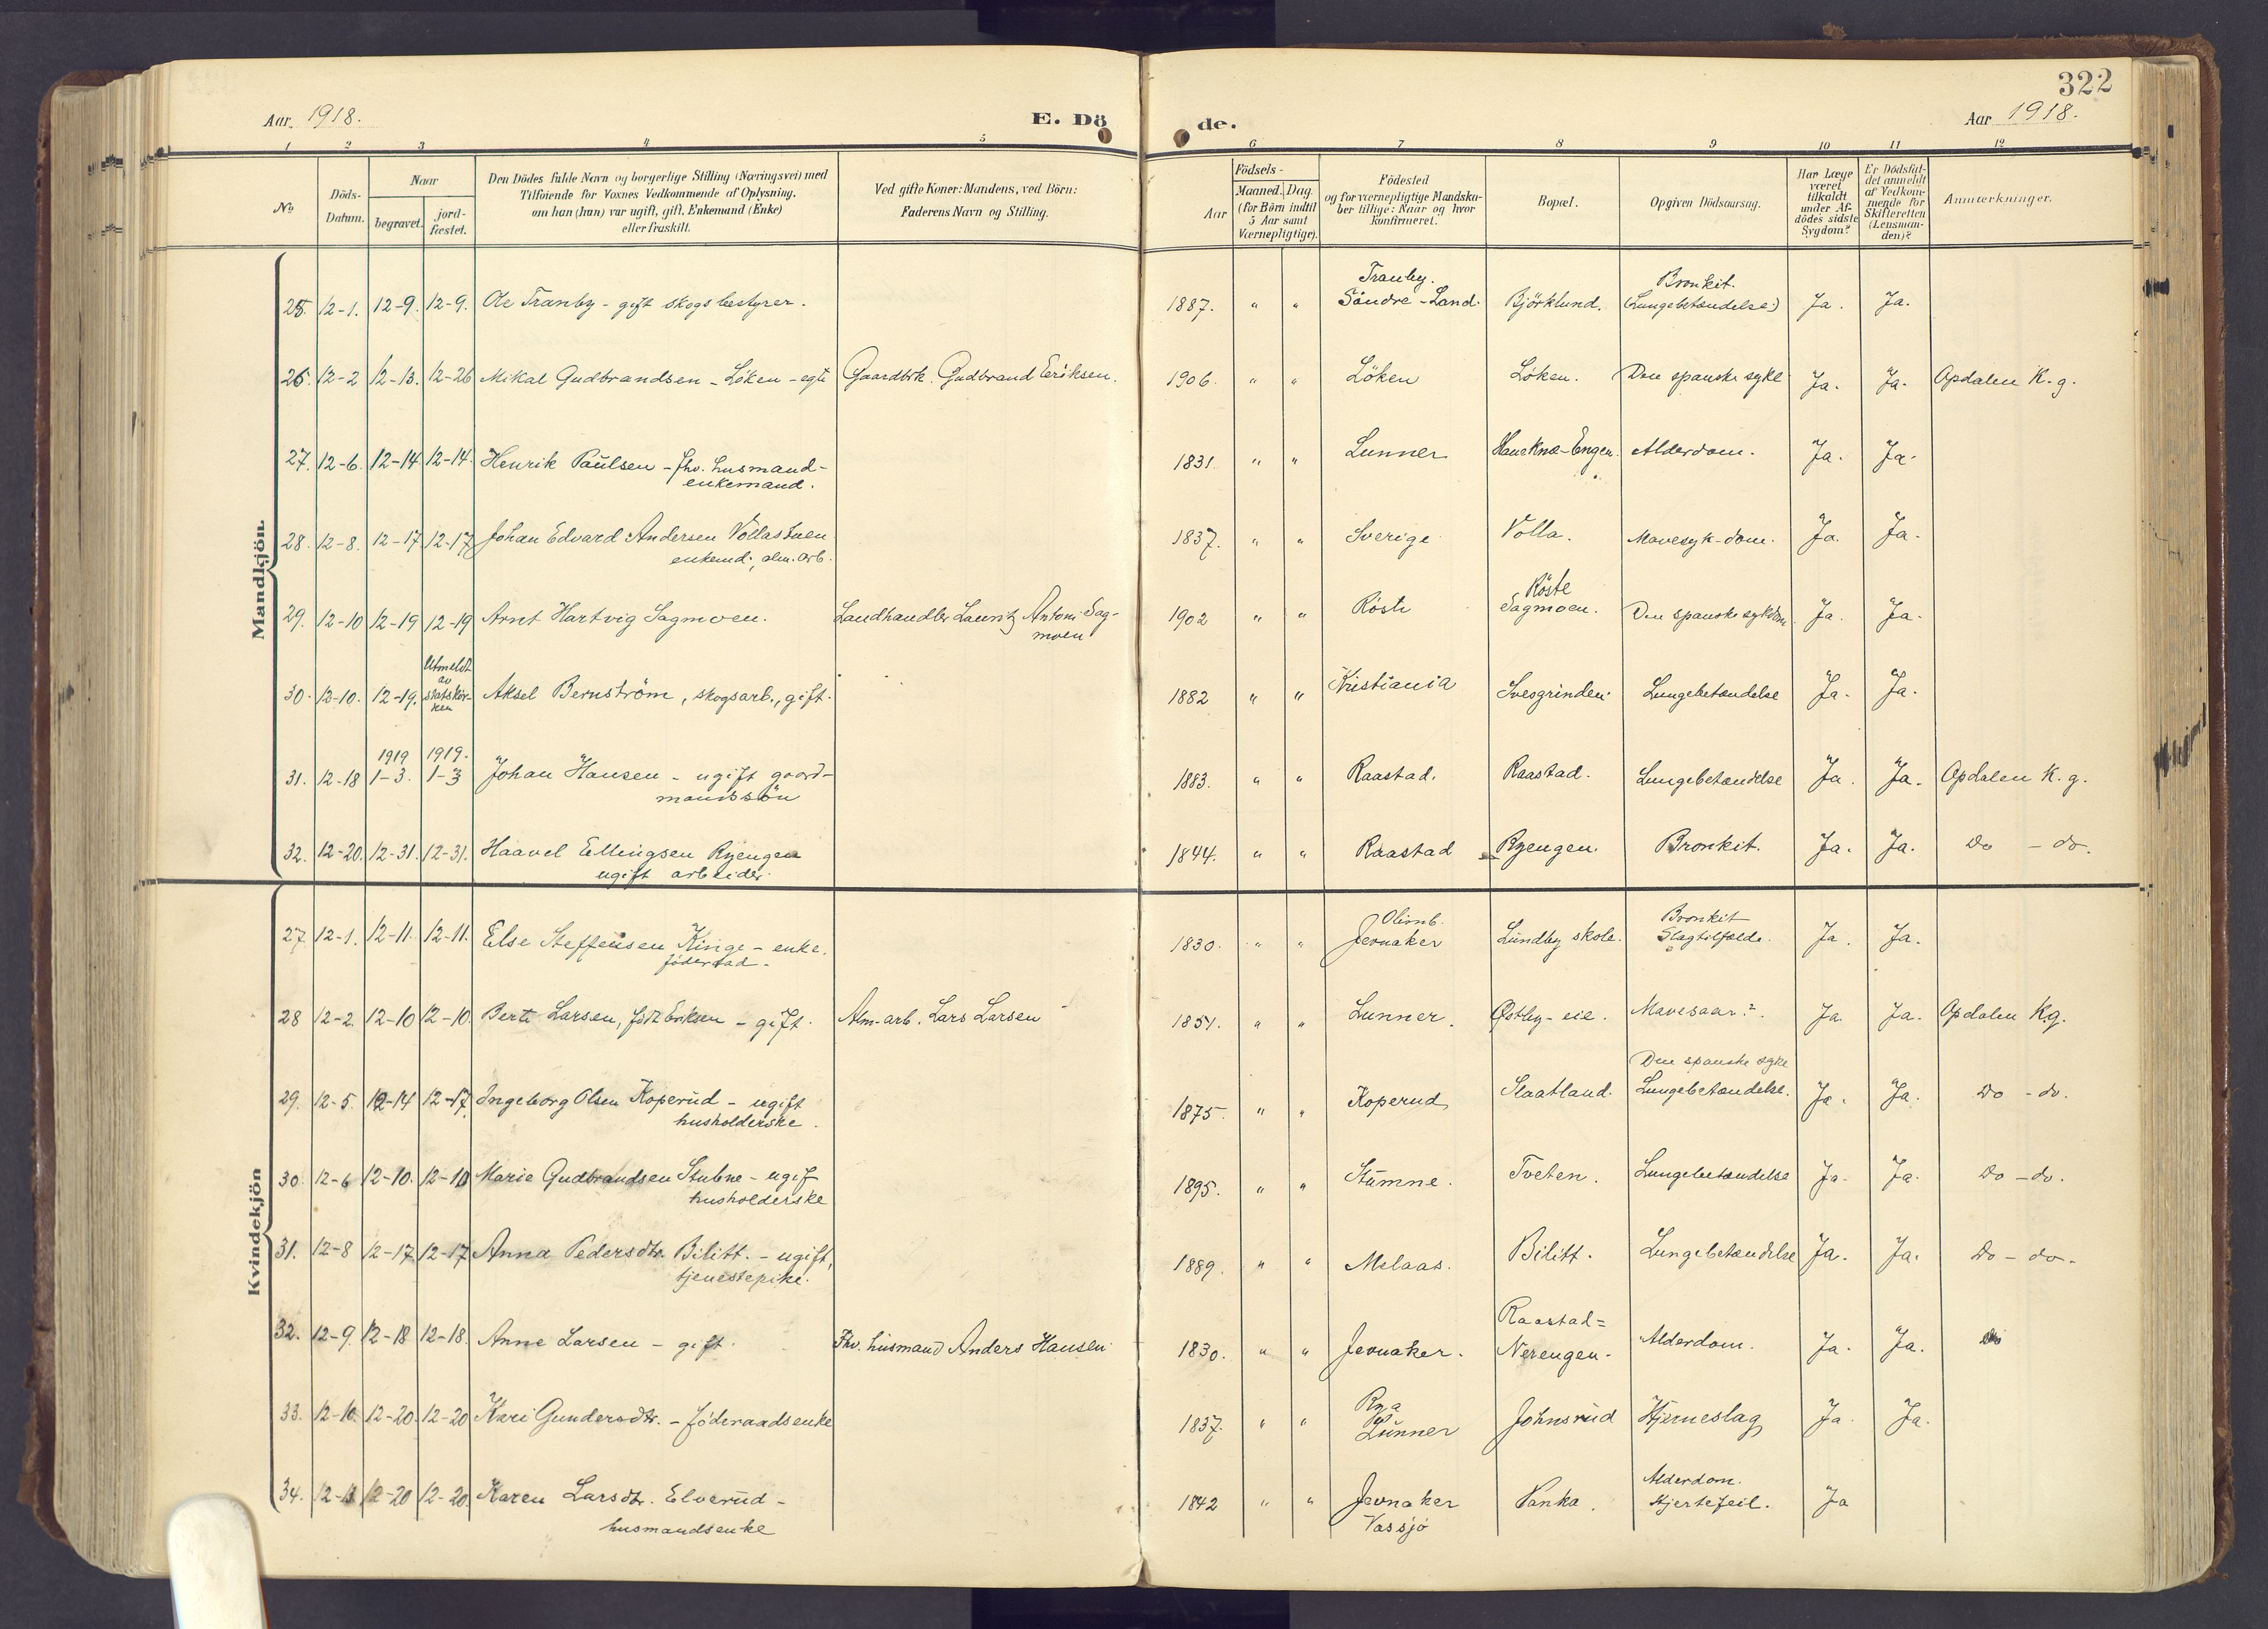 322
Aar 1918.
E. Dö
de.
Aar 1918.
1 2 3 4 5 6 7 8 9 10 11 12
No
Döds-
Datum.
Naar
begravet.
jord-
fæstet.
Den Dödes fulde Navn og borgerlige Stilling (Næringsvei) med
Tilföiende for Voxnes Vedkommende af Oplysning,
om han (hun) var ugift, gift, Enkemand (Enke)
eller fraskilt.
Ved gifte Koner: Mandens, ved Börn:
Faderens Navn og Stilling.
Födsels-
Aar
Maaned. Dag.
(for Börn indtil
5 Aar samt
Værnepligtige).
Födested
og for værnepligtige Mandska-
ber tillige: Naar og hvor
konfirmeret.
Bopæl.
Opgiven Dödsaarsag.
Har Læge
været
tilkaldt
under Af-
dödes sidste
Sygdom?
Er Dödsfal-
det anmeldt
af Vedkom-
mende for
Skifteretten
(Lensman-
den)?
Anmærkninger.
Mandkjön.
25. 12-1. 12-9. 12-9. Ole Tranby - gift skogsbestyrer. 1887. " " Tranby. Söndre-Land. Björklund. Bronkit. (Lungebetændelse) Ja. Ja.
26. 12-2 12-13. 12-26 Mikal Gudbrandsen - Löken - egte Gaardbrk. Gudbrand Eriksen. 1906. " " Löken Löken. Den spanske syke Ja. Ja. Opdalen K.g.
27. 12-6. 12-14 12-14. Henrik Paulsen - fhv. husmand-
enkemand. 1831. " " Lunner Hanekne-Engen. Alderdom. Ja. Ja.
28. 12-8. 12-17 12-17 Johan Edvard Andersen Vollastuen
enkemd., alm. arb. 1837. " " Sverige Volla. Mavesyk-dom. Ja. Ja.
29. 12-10 12-19 12-19 Arnt Hartvig Sagmoen. Landhandler Lauritz Antoni Sag-
moen 1902 " " Röste Röste Sagmoen. Den spanske sykdom. Ja. Ja.
30. 12-10. 12-19. Utmeldt
av
statskir-
ken Aksel Bernström, skogsarb., gift. 1882 " " Kristiania Svesgrinden. Lungebetændelse Ja. Ja.
31. 12-18 1919 1-3. 1919. 1-3 Johan Hansen - ugift gaard-
mandssön 1883. " " Raastad. Raastad. Lungebetændelse Ja. Ja. Opdalen K.g.
32. 12-20. 12-31. 12-31. Haavel Ellingsen Ryengen
ugift arbeider. 1844. " " Raastad Ryengen. Bronkit. Ja. Ja. Do - do.
Kvindekjön
27. 12-1. 12-11. 12-11. Else Steffensen Kinge - enke.
föderaad. 1830. " " Olimb. Jevnaker Lundby skole. Bronkit Slagtilfælde. Ja. Ja.
28 12-2. 12-10 12-10. Berte Larsen, född Eriksen - gift. Alm-arb. Lars Larsen 1851. " " Lunner. Østby-eie. Mavesaar?. Ja. Ja. Opdalen K.g.
29. 12-5. 12-14 12-17. Ingeborg Olsen Koperud - ugift
husholderske. 1875. " " Koperud Slaatland. Den spanske syke Lungebetændelse. Ja. Ja. Do - do.
30. 12-6 12-10. 12-10 Marie Gudbrandsen Stubne - ugif
husholderske 1895. " " Stumne. Tveten. Lungebetændelse Ja. Ja. Do - do.
31. 12-8 12-17 12-17. Anna Pedersdtr. Bilitt. - ugift,
tjenestepike. 1889. " " Melaas. Bilitt. Lungebetændelse Ja. Ja. Do - do.
32. 12-9. 12-18 12-18. Anne Larsen - gift. Fhv. husmand Anders Hansen 1830. " " Jevnaker. Raastad=
Nerengen. Alderdom. Ja. Ja.
33. 12-10. 12-20. 12-20 Kari Gundersdtr. - föderaadsenke 1837. " " Rya Lunner Johnsrud Hjerneslag Ja. Ja.
34. 12-20 12-20. Karen Larsdtr. Elverud -
husmandsenke 1842 " " Jevnaker
Vassjö Vanka. Alderdom. Hjertefeil. Ja